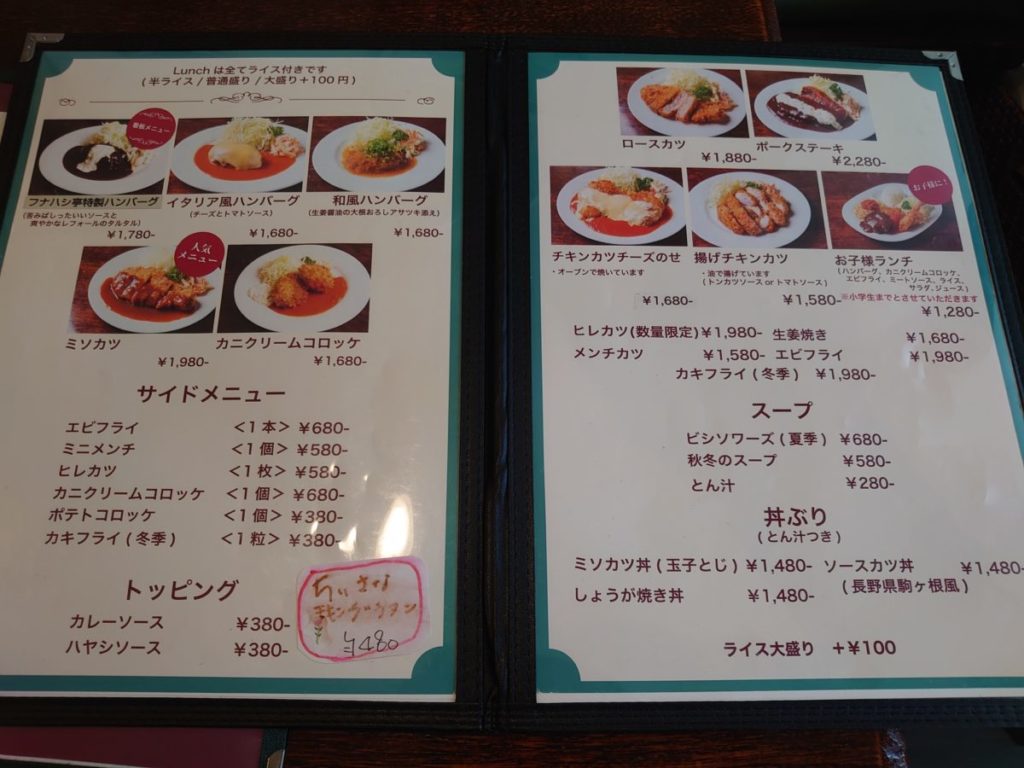 Lunch は全てライス付きです
(半ライス / 普通盛り / 大盛り+100 円)
看板メニュー
フナハシ亭特製ハンバーグ
(苦みばしったいいソースと
爽やかなレフォールのタルタル)
¥1,780-
イタリア風ハンバーグ
(チーズとトマトソース)
¥1,680-
和風ハンバーグ
(生姜醤油の大根おろしアサツキ添え)
¥1,680-
人気
メニュー
ミソカツ
¥1,980-
カニクリームコロッケ
¥1,680-
サイドメニュー
エビフライ <1 本> ¥680-
ミニメンチ <1 個> ¥580-
ヒレカツ <1 枚> ¥580-
カニクリームコロッケ <1 個> ¥680-
ポテトコロッケ <1 個> ¥380-
カキフライ ( 冬季 ) <1 粒> ¥380-
トッピング
カレーソース ¥380-
ハヤシソース ¥380-
ちいさな
¥480
ロースカツ
¥1,880-
ポークステーキ
¥2,280-
チキンカツチーズのせ
・オーブンで焼いています
¥1,680-
揚げチキンカツ
・油で揚げています
(トンカツソース or トマトソース)
¥1,580-
お子様に!
お子様ランチ
(ハンバーグ、カニクリームコロッケ、
エビフライ、ミートソース、ライス、
サラダ、ジュース)
※小学生までとさせていただきます
¥1,280-
ヒレカツ(数量限定) ¥1,980- 生姜焼き ¥1,680-
メンチカツ ¥1,580- エビフライ ¥1,980-
カキフライ ( 冬季 ) ¥1,980-
スープ
ビシソワーズ ( 夏季 ) ¥680-
秋冬のスープ ¥580-
とん汁 ¥280-
丼ぶり
( とん汁つき )
ミソカツ丼 ( 玉子とじ ) ¥1,480- ソースカツ丼 ¥1,480-
( 長野県駒ヶ根風 )
しょうが焼き丼 ¥1,480-
ライス大盛り +¥100